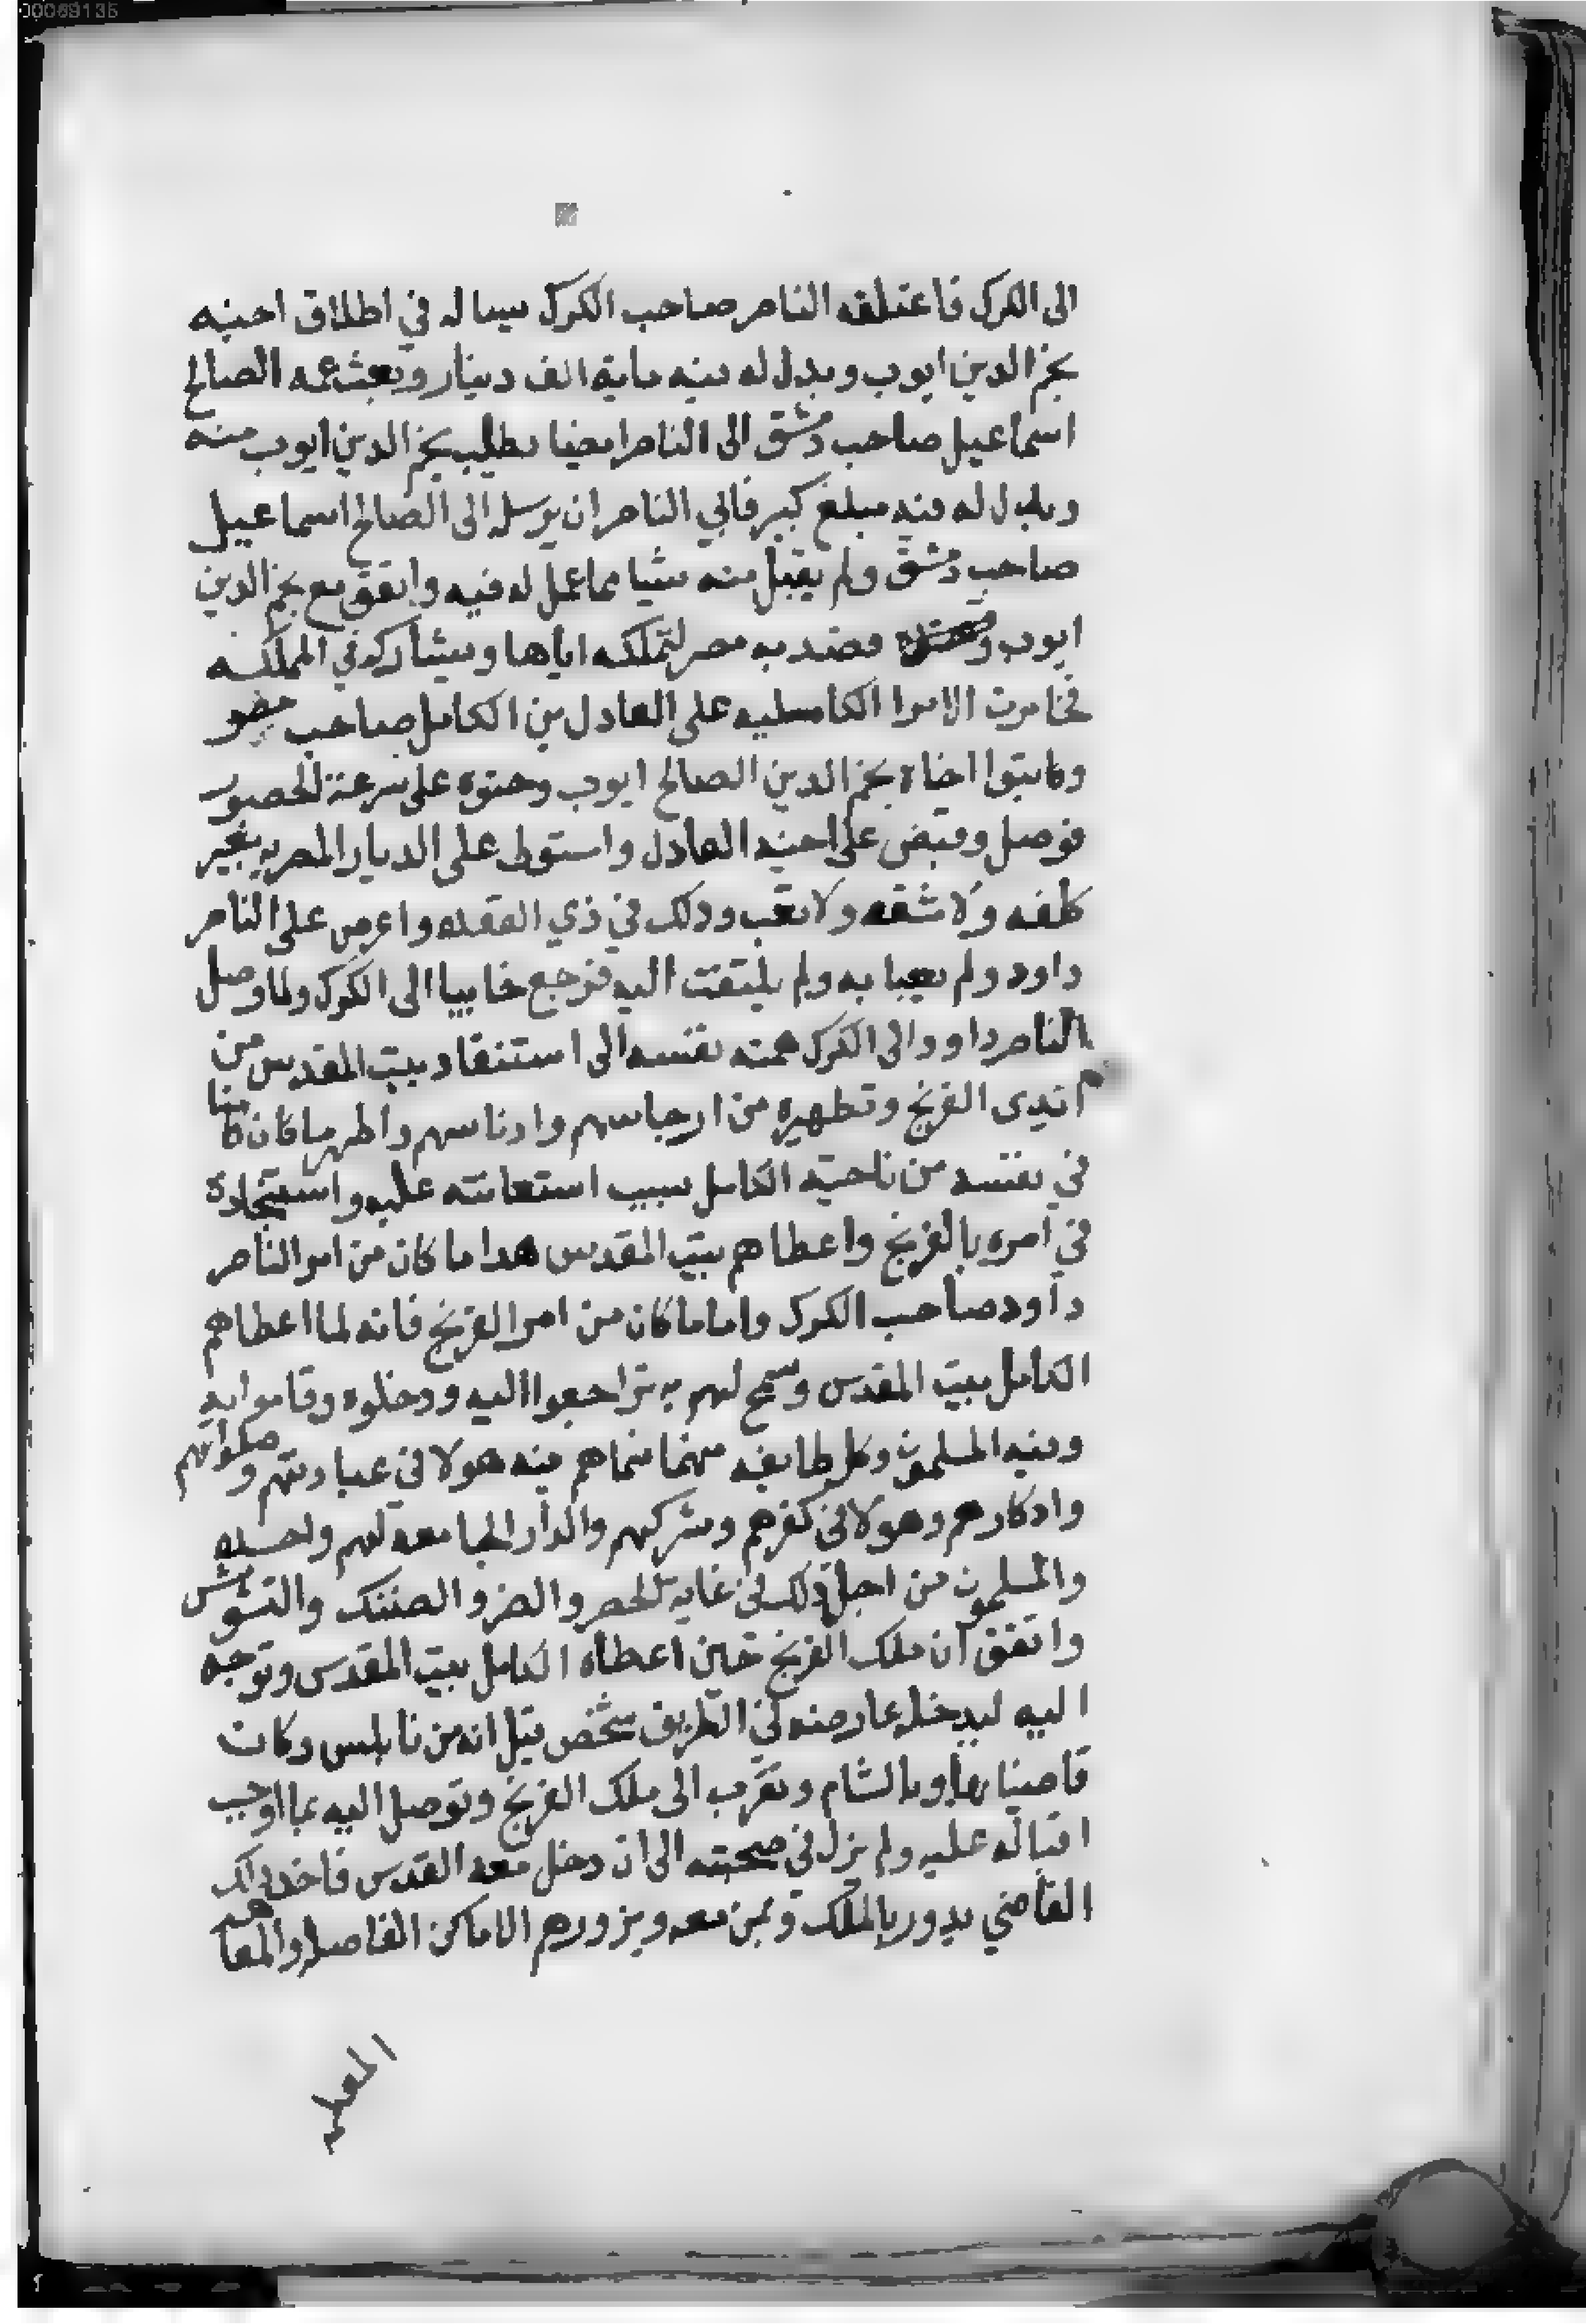 00069135
الى الكرك فاعتلقه الناصر صاحب الكرك يساله في اطلاق اخيه
نجم الدين ايوب وبدل له فيه ماية الف دينار وبعث عمه الصالح
اسماعيل صاحب دمشق الى الناصر ايضا يطلب نجم الدين ايوب منه
وبدل له فيه مبلغ كبير فابي الناصر ان يرسله الى الصالح اسماعيل
صاحب دمشق ولم يقبل منه شيا مما عمل له فيه واتفق مع نجم الدين
ايوب وقصد به مصر لتملكه اياها ويشاركه في المملكه
فخامرت الامرا الكامليه على العادل بن الكامل صاحب مصر
وكاتبوا اخاه نجم الدين الصالح ايوب وحثوه على سرعة الحضور
فوصل وقبض على اخيه العادل واستولى على الديار المصريه بغير
كلفه ولا مشقه ولا تعب ودلك في ذي القعده واعرض على الناصر
داود ولم يعبا به ولم يلتفت اليه فرجع خايبا الى الكرك ولما وصل
الناصر داود الى الكرك همته نفسه الى استنقاد بيت المقدس من
ايدى الفرنج وتطهيره من ارجاسهم وادناسهم واظهر ما كان كامنا
في نفسه من ناحية الكامل بسبب استعانته عليه واستنجاده
في امره بالفرنج واعطاهم بيت المقدس هدا ما كان من امر الناصر
داود صاحب الكرك واما ما كان من امر الفرنج فانه لما اعطاهم
الكامل بيت المقدس وسمح لهم به تراجعوا اليه ودخلوه وقاموا به
وفيه المسلمون وكل طايفه منهما فيما هم فيه هولا في عبادتهم وصلواتهم
وادكارهم وهولا في كفرهم وشركهم والدار الجامعه لهم واحده
والمسلمون من اجل ذلك في غاية الحصر والضر والضنك والتشويش
واتفق ان ملك الفرنج حين اعطاه الكامل بيت المقدس وتوجه
اليه ليدخله عارضه في الطريق شخص قيل انه من نابلس وكان
قاضيا بها او بالشام وتقرب الى ملك الفرنج وتوصل اليه بما اوجب
اقباله عليه ولم يزل في صحبته الى ان دخل معه القدس فاخد دلك
القاضي يدور بالملك وبمن معه ويزورهم الاماكن الفاضله والمعاهد
المعظمه